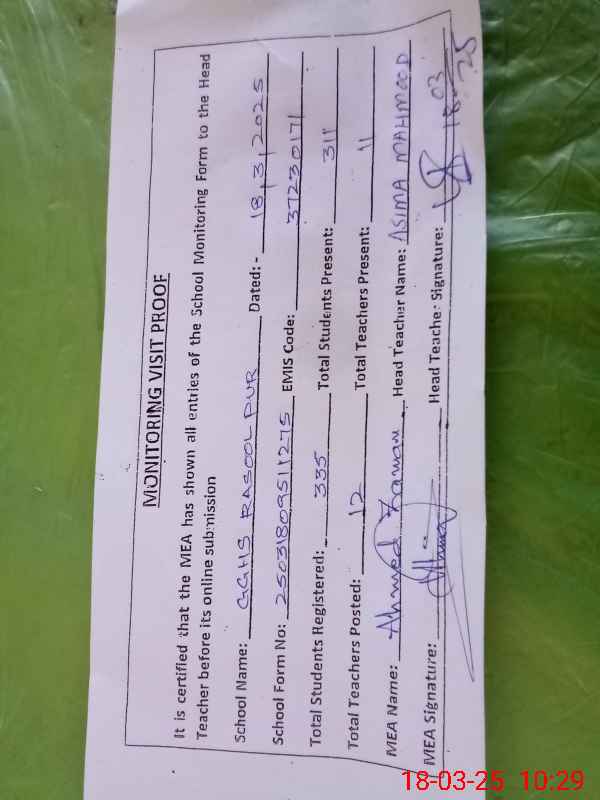 MONITORING VISIT PROOF
It is certified that the MEA has shown all entries of the School Monitoring Form to the Head
Teacher before its online submission
School Name: GGHS RASOOLPUR Dated: - 18,3,2025
School Form No: 25031809511275 EMIS Code: 37230171
Total Students Registered: 335 Total Students Present: 311
Total Teachers Posted: 12 Total Teachers Present: 11
MEA Name: Ahmed Zaman Head Teacher Name: ASIMA MAHMOOD
MEA Signature: Head Teacher Signature: 18.03
25
18-03-25 10:29